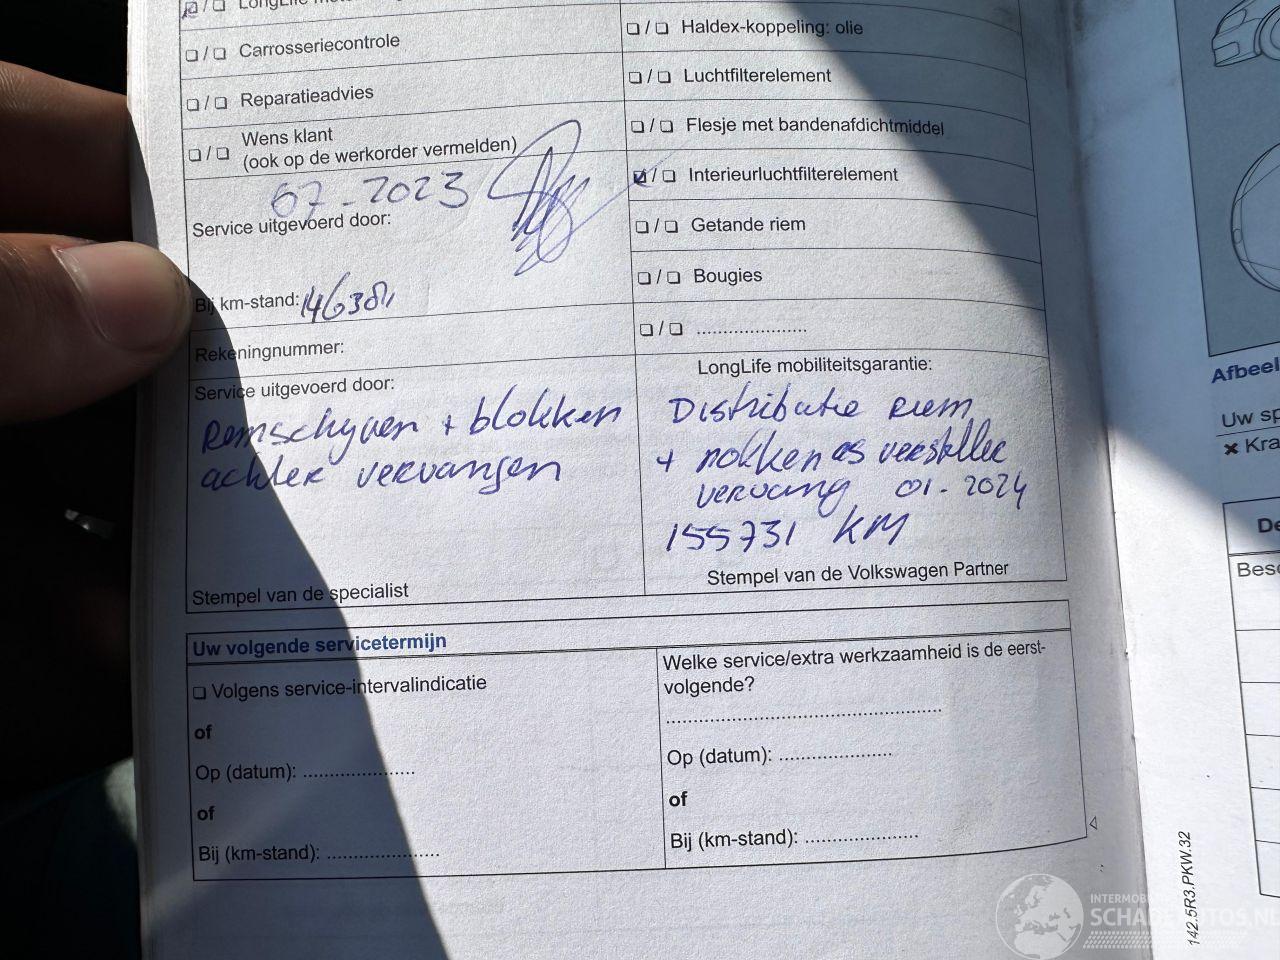 ❏ / ❏ Carrosseriecontrole
❏ / ❏ Reparatieadvies
❏ / ❏ Wens klant
(ook op de werkorder vermelden)
07-2023
Service uitgevoerd door:
Bij km-stand:
Rekeningnummer:
Service uitgevoerd door:
Remschyven + blokken
achter vervangen
Stempel van de specialist
❏ / ❏ Haldex-koppeling: olie
❏ / ❏ Luchtfilterelement
❏ / ❏ Flesje met bandenafdichtmiddel
☑ / ❏ Interieurluchtfilterelement
❏ / ❏ Getande riem
❏ / ❏ Bougies
❏ / ❏ ......................
LongLife mobiliteitsgarantie:
Distributie Riem
+ nokken as versteller
vervang 01-2024
155731 KM
Stempel van de Volkswagen Partner
Uw volgende servicetermijn
❏ Volgens service-intervalindicatie
of
Op (datum): ......................
of
Bij (km-stand): ......................
Welke service/extra werkzaamheid is de eerst-
volgende?
......................................................
Op (datum): ......................
of
Bij (km-stand): ......................
Uw
✖ Kra
142.5R3.PKW.32